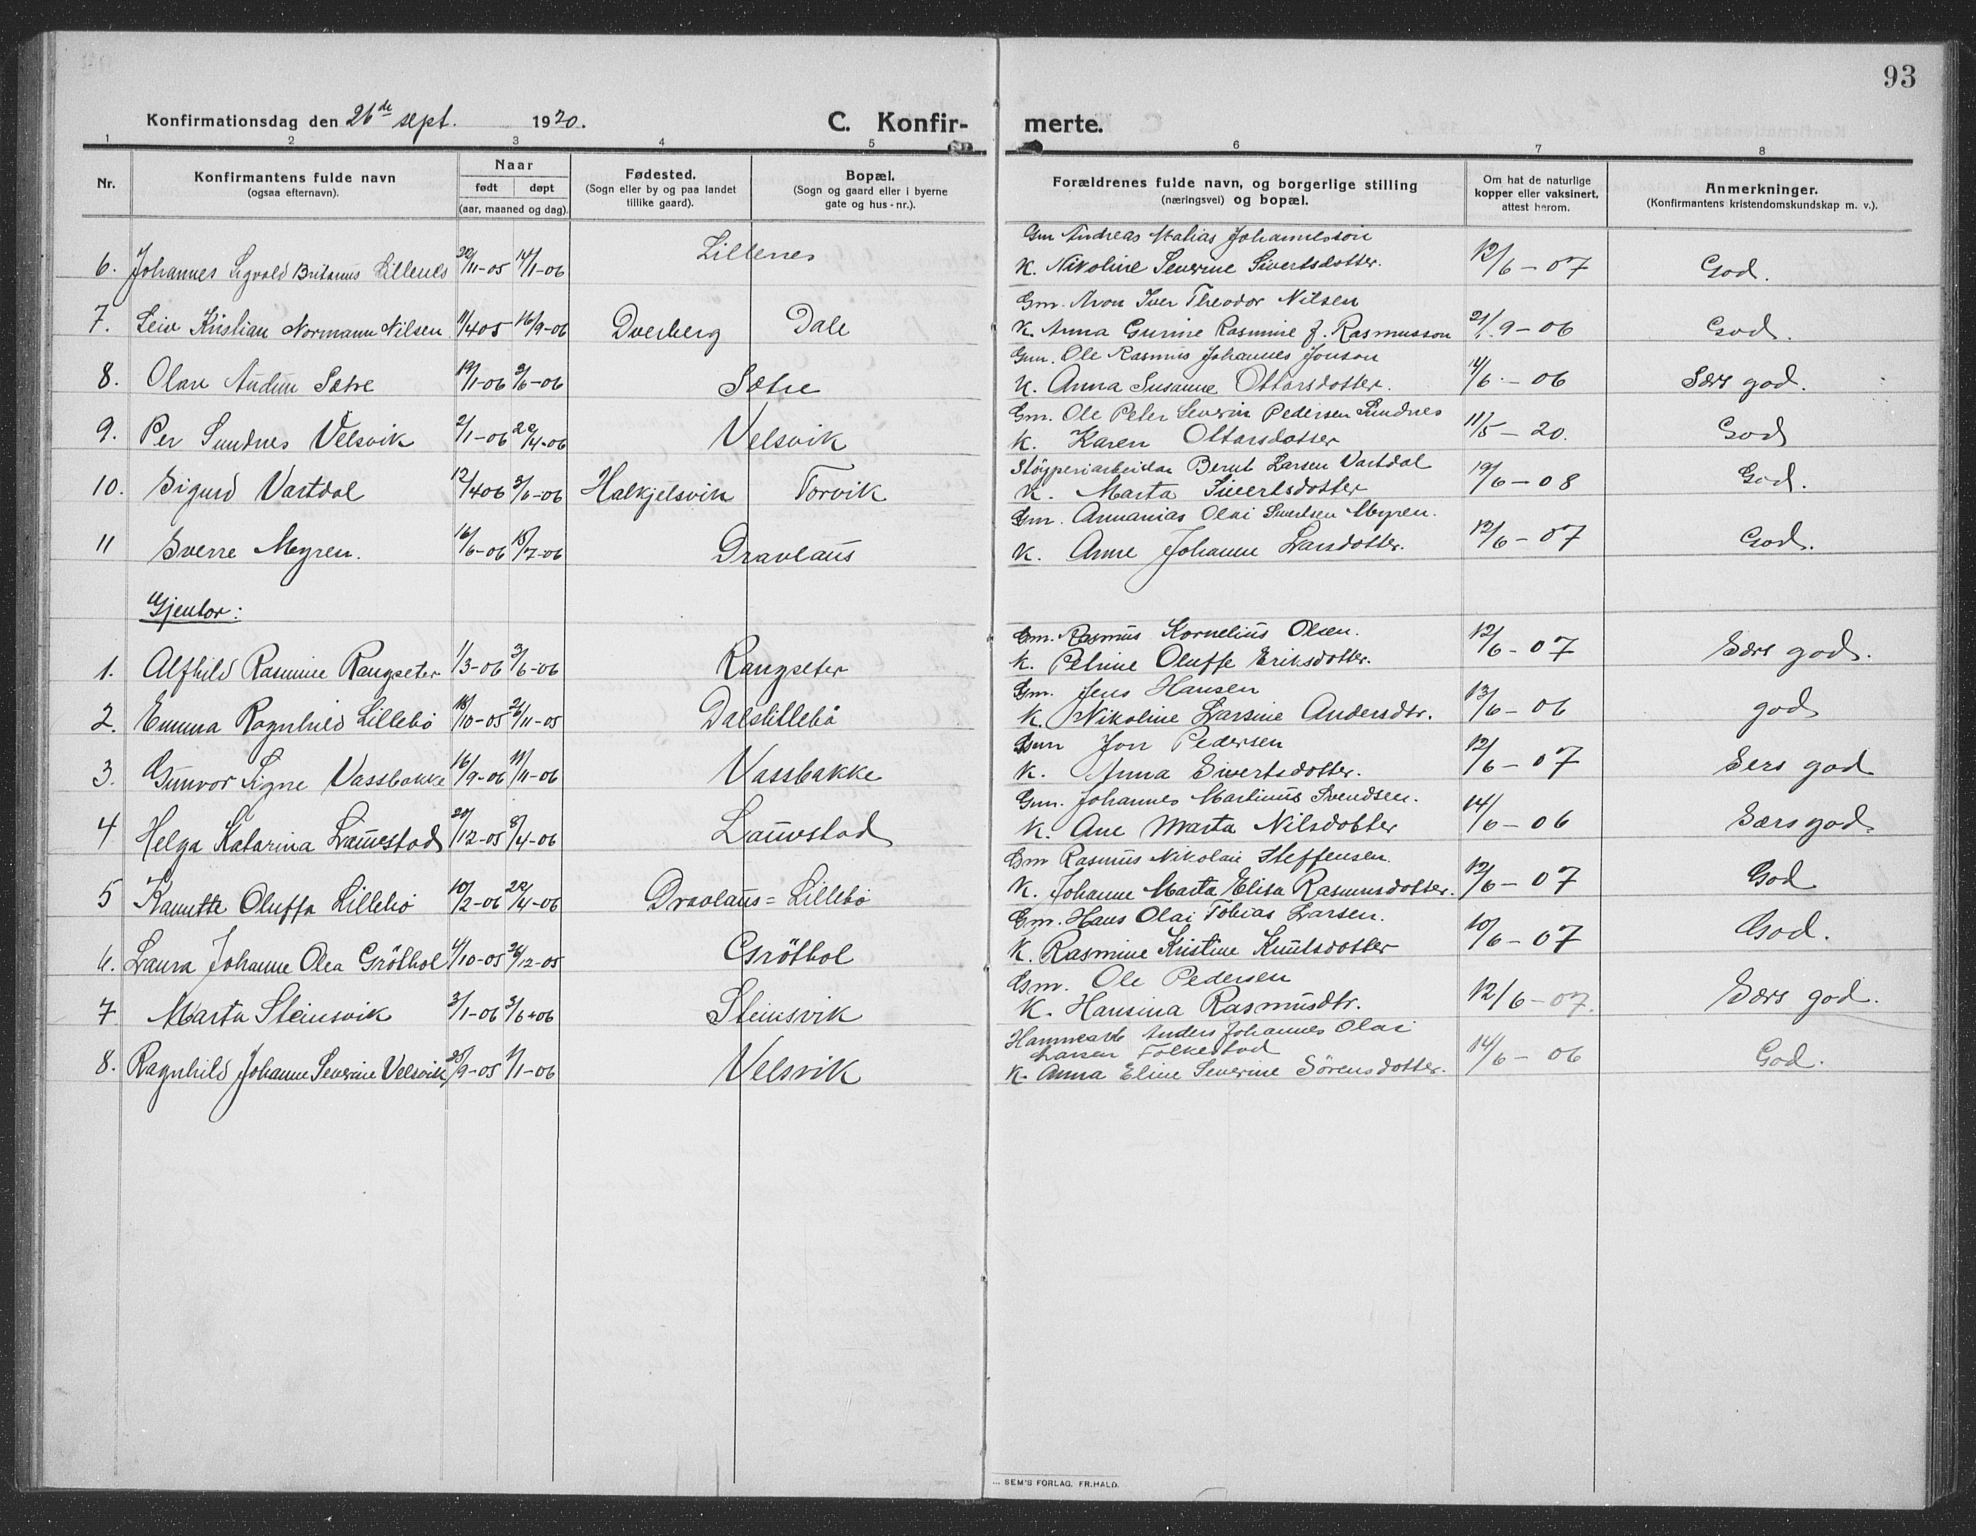 93
Konfirmationsdag den 26de sept. 1920. C. Konfir- merte.
1 2 3 4 5 6 7 8
Nr. Konfirmantens fulde navn (ogsaa efternavn). Naar født døpt (aar, maaned og dag). Fødested. (Sogn eller by og paa landet tillike gaard). Bopæl. (Sogn og gaard eller i byerne gate og hus-nr.). Forældrenes fulde navn, og borgerlige stilling (næringsvei) og bopæl. Om hat de naturlige kopper eller vaksinert, attest herom. Anmerkninger. (Konfirmantens kristendomskundskap m. v.).
Gm Andreas Matias Johannesson
6. Johannes Sigvald Lillenes 20/11-05 14/1-06 Lillenes K. Nikoline Severine Sivertsdotter. 12/6-07 God.
Gm. Aron Iver Theodor Nilsen
7. Leiv Kristian Normann Nilsen 11/4 05 16/9-06 Dverberg Dale K. Anna Gurine Rasmine f. Rasmusson 21/9-06 God.
Gm. Ole Rasmus Johannes Jonson
8. Olav Audun Sætre 19/1-06 3/6-06 Sætre K. Anna Susanne Ottarsdotter. 14/6-06 Særs god.
Gm. Ole Peter Severin Pedersen Sundnes
9. Per Sundnes Velsvik 2/1-06 22/4-06 Velsvik K. Karen Ottarsdotter 11/5-20. God
Støyperiarbeidar Bernt Larsen Vartdal
10. Sigurd Vartdal 12/4 06 3/6-06 Halkjelsvik Torvik K. Marta Sivertsdotter 19/6-08 God.
Gm. Annanias Olai Sivertsen Myren.
11 Sverre Myren. 16/6-06 15/7-06 Dravlaus K. Anne Johanne Larsdotter. 12/6-07 God.
Gjentor:
Gm. Rasmus Kornelius Olsen.
1. Alfhild Rasmine Rangseter 1/3-06 3/6-06 Rangseter K. Peline Oluffe Eriksdotter. 12/6-07 Særs god.
Gm. Jens Hansen
2. Emma Ragnhild Lillebö 18/10-05 26/11-05 Dalslillebö K. Nikoline Larsine Andersdtr. 13/6-06 god
Gm Jon Pedersen
3. Gunvor Signe Vassbakke 16/9-06 11/11-06 Vassbakke K. Anna Sivertsdotter. 12/6-07 Sers god
Gm. Johannes Martinus Svendsen.
4 Helga Katarina Lauvstad 20/12-05 8/4-06 Lauvstad K. Ane Marta Nilsdotter 14/6-06 Særs god.
Gm Rasmus Nikolai Steffensen.
5 Kanutte Oluffa Lillebö 10/2-06 22/4-06 Dravlaus=Lillebö K. Johanne Marta Elisa Rasmusdotter. 12/6-07 God
Gm. Hans Olai Tobias Larsen.
6. Laura Johanne Olea Grötbol 4/10-05 26/12-05 Grötbol K. Rasmine Kristine Knutsdotter 10/6-07 God.
Gm. Ole Pedersen
7. Marta Steinsvik 3/1-06 3/6-06 Steinsvik K. Hansina Rasmusdtr. 12/6-07. Særs god.
Anders Johannes Olai
Larsen Folkestad
8. Ragnhild Johanne Severine Velsvik 25/9-05 1/1-06 Velsvik K. Anna Eline Severine Sörensdotter. 14/6-06 God.
SEM'S FORLAG. FR.HALD.